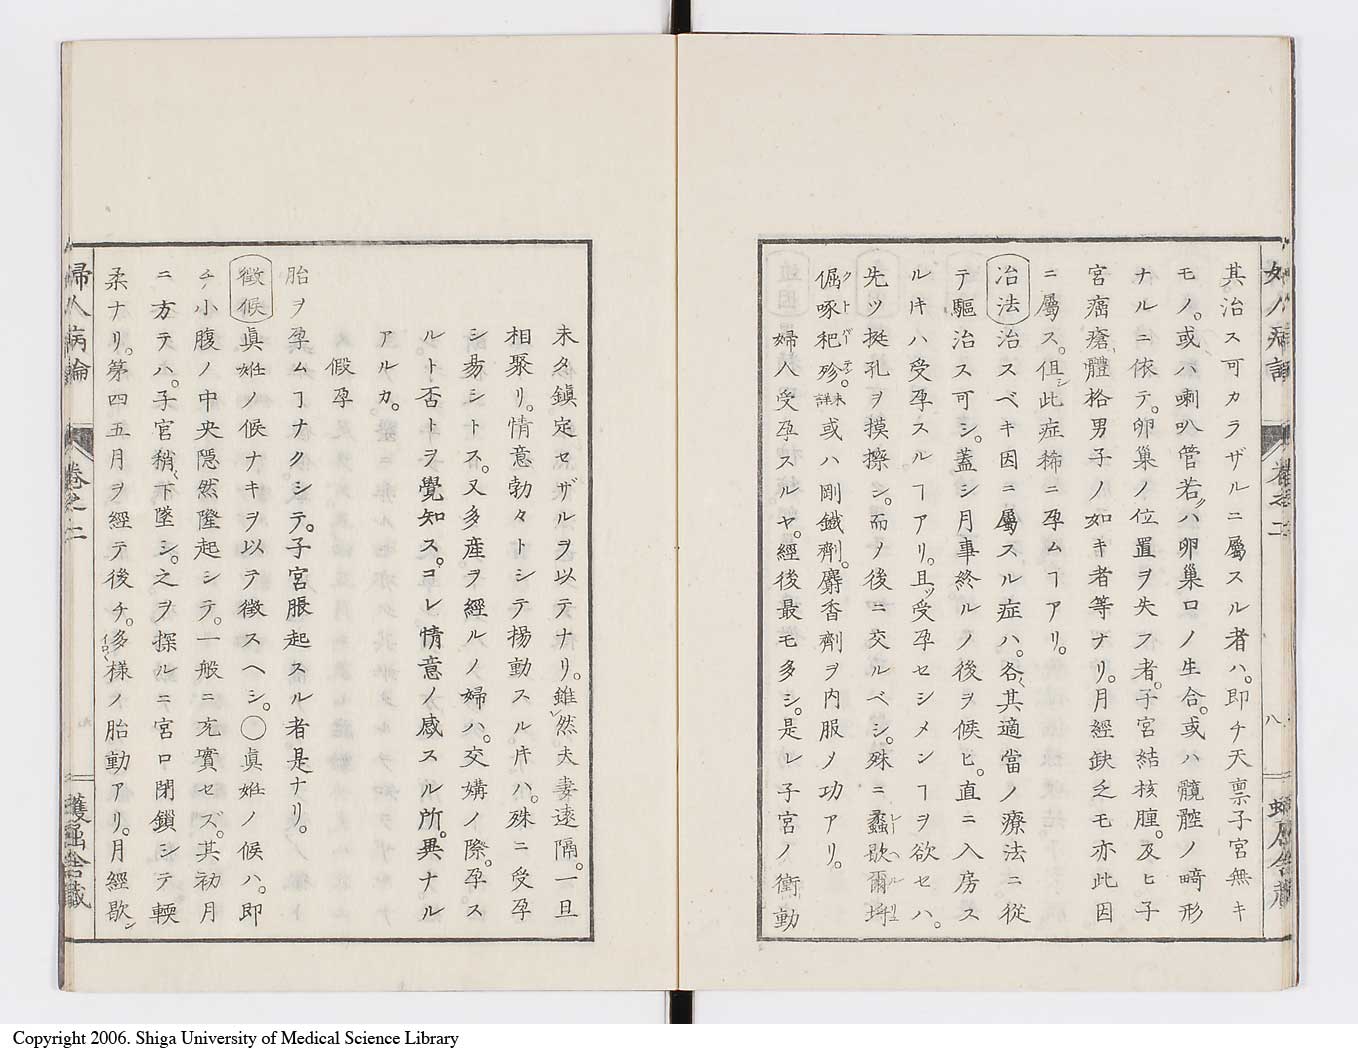 其治ス可カラザルニ屬スル者ハ。即チ天禀子宮無キ
モノ。或ハ喇叭管若ハ卵巢口ノ生合。或ハ髖腔ノ畸形
ナルニ依テ。卵巢ノ位置ヲ失ス者。子宮結核腫。及ヒ子
宮癌瘡、體格男子ノ如キ者等ナリ。月經缺乏モ亦此因
ニ屬ス。但シ此症稀ニ孕ムヿアリ。
治法 治スベキ因ニ屬スル症ハ。各其適當ノ療法ニ從
テ驅治ス可シ。蓋シ月事終ルノ後ヲ候ヒ。直ニ入房ス
ルキハ受孕スルヿアリ。且ツ受孕セシメンヿヲ欲セハ。
先ツ挺孔ヲ摸擦シ。而ノ後ニ交ルベシ。殊ニ蠡歇爾
倔啄杷殄。未詳 或ハ剛鐵劑。麝香劑ヲ內服メ功アリ。
婦人受孕スルヤ。經後最モ多シ。是レ子宮ノ衝動
八
未タ鎮定セザルヲ以テナリ。雖然夫妻遠隔。一旦
相聚リ。情意勃々トシテ揚動スルキハ。殊ニ受孕
シ易シトス。又多産ヲ經ルノ婦ハ。交媾ノ際。孕ス
ルト否トヲ覺知ス。コレ情意ノ感スル所。異ナル
アルカ。
假孕
胎ヲ孕ムヿナクシテ。子宮脹起スル者是ナリ。
徵候 眞妊ノ候ナキヲ以テ徵スヘシ。〇眞妊ノ候ハ。即
チ小腹ノ中央隠然隆起シテ。一般ニ充實セズ。其初月
ニ方テハ。子宮稍下墜シ。之ヲ探ルニ宮口閉鎖シテ輭
柔ナリ。第四五月ヲ經テ後チ。多様ノ胎動アリ。月經歇シ
婦人病論 卷之二